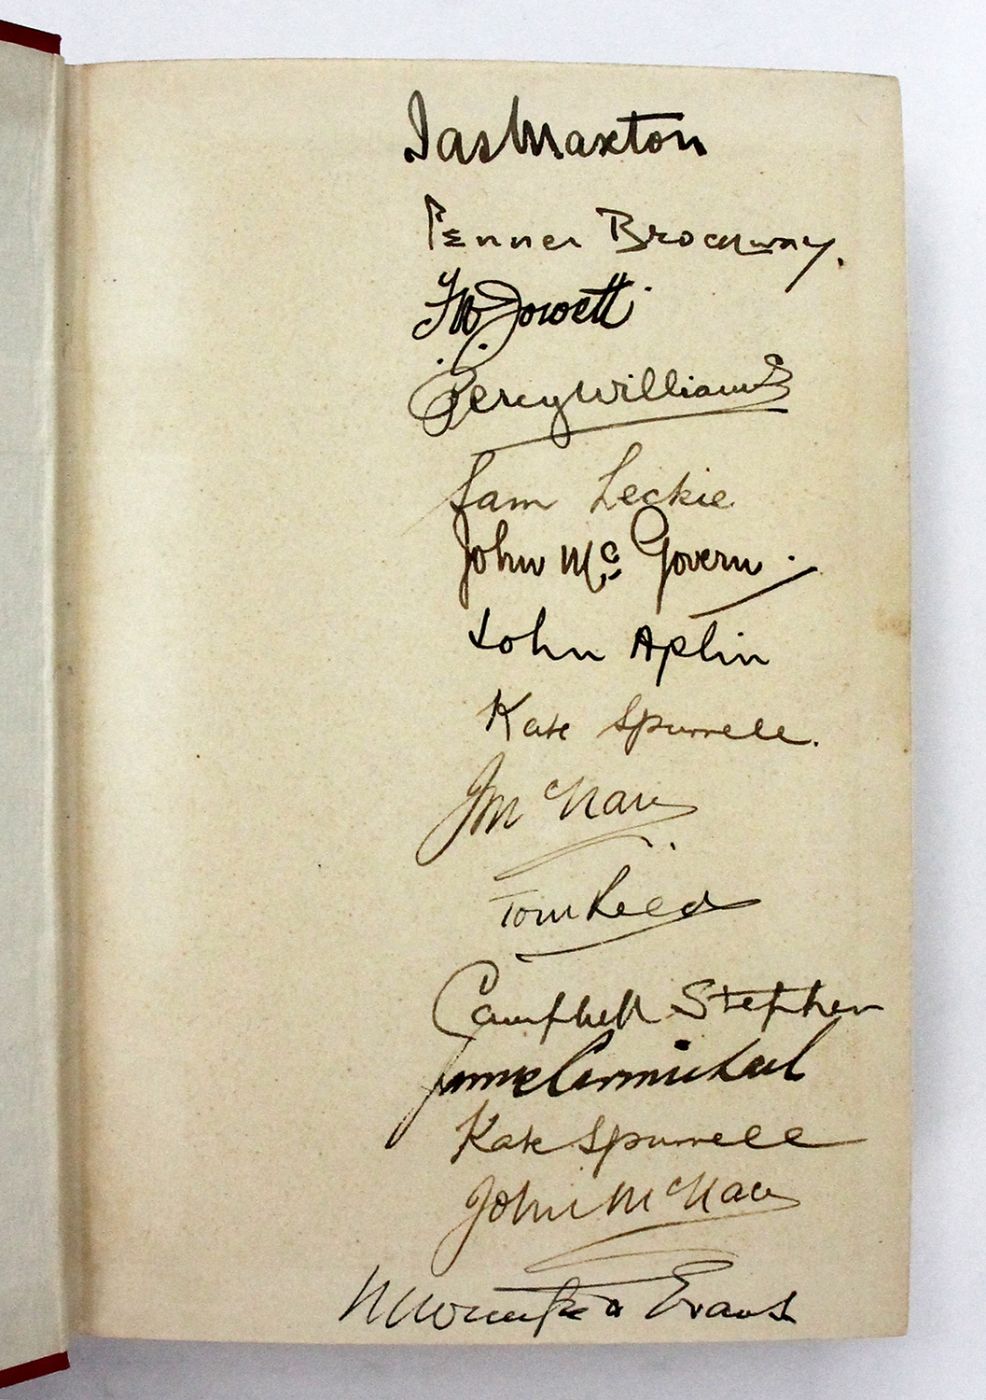 Jas Maxton
Fenner Brockway.
F W Jowett.
Percy Williams
Sam Leckie
John McGovern.
John Aplin
Kate Spurrell.
J McNair
Tom Reed
Campbell Stephen
James Carmichael
Kate Spurrell
John McNair
Evans